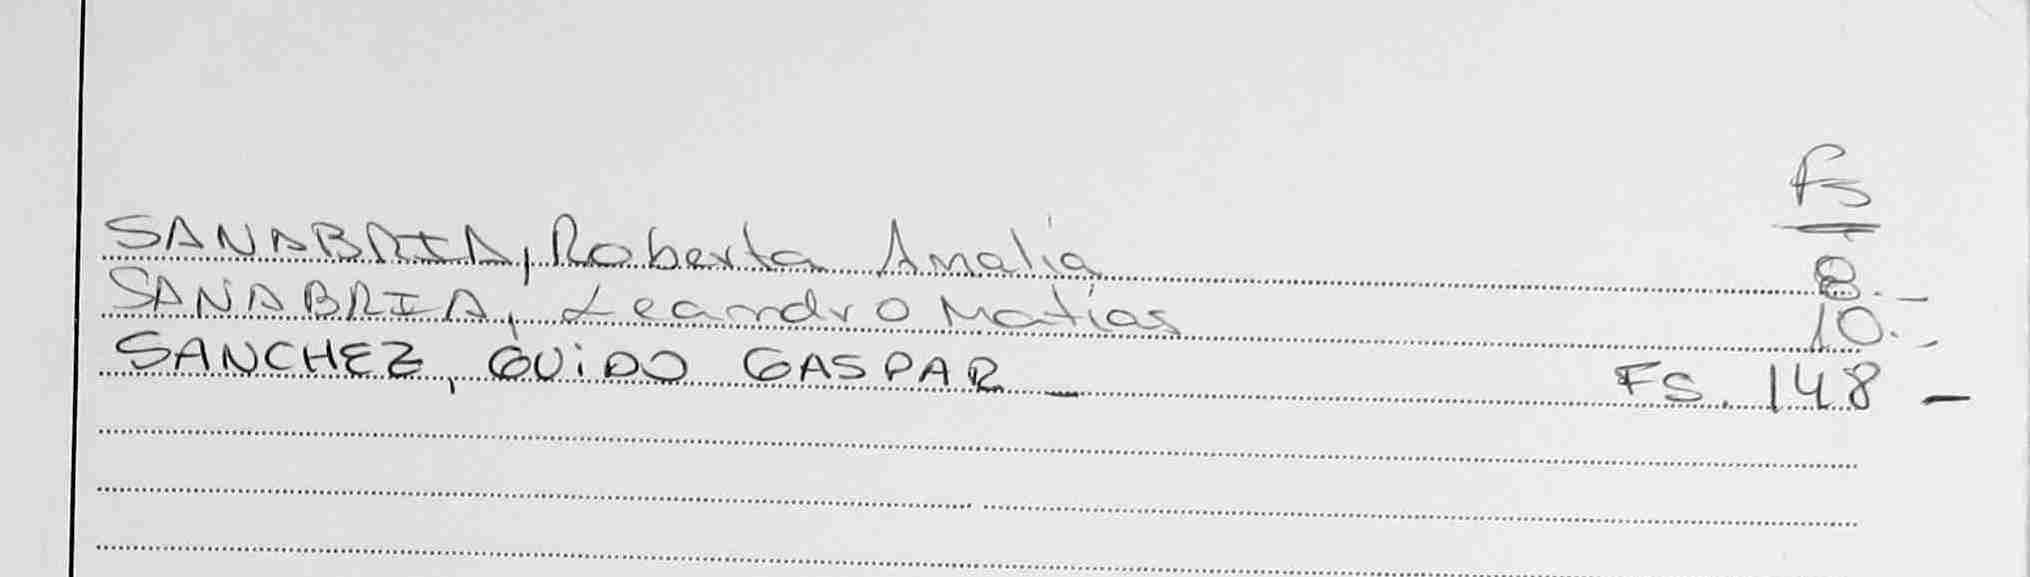 fs
SANABRIA, Roberta Amalia 8.-
SANABRIA, Leandro Matías 10.-
SANCHEZ, GUIDO GASPAR - FS. 148 -